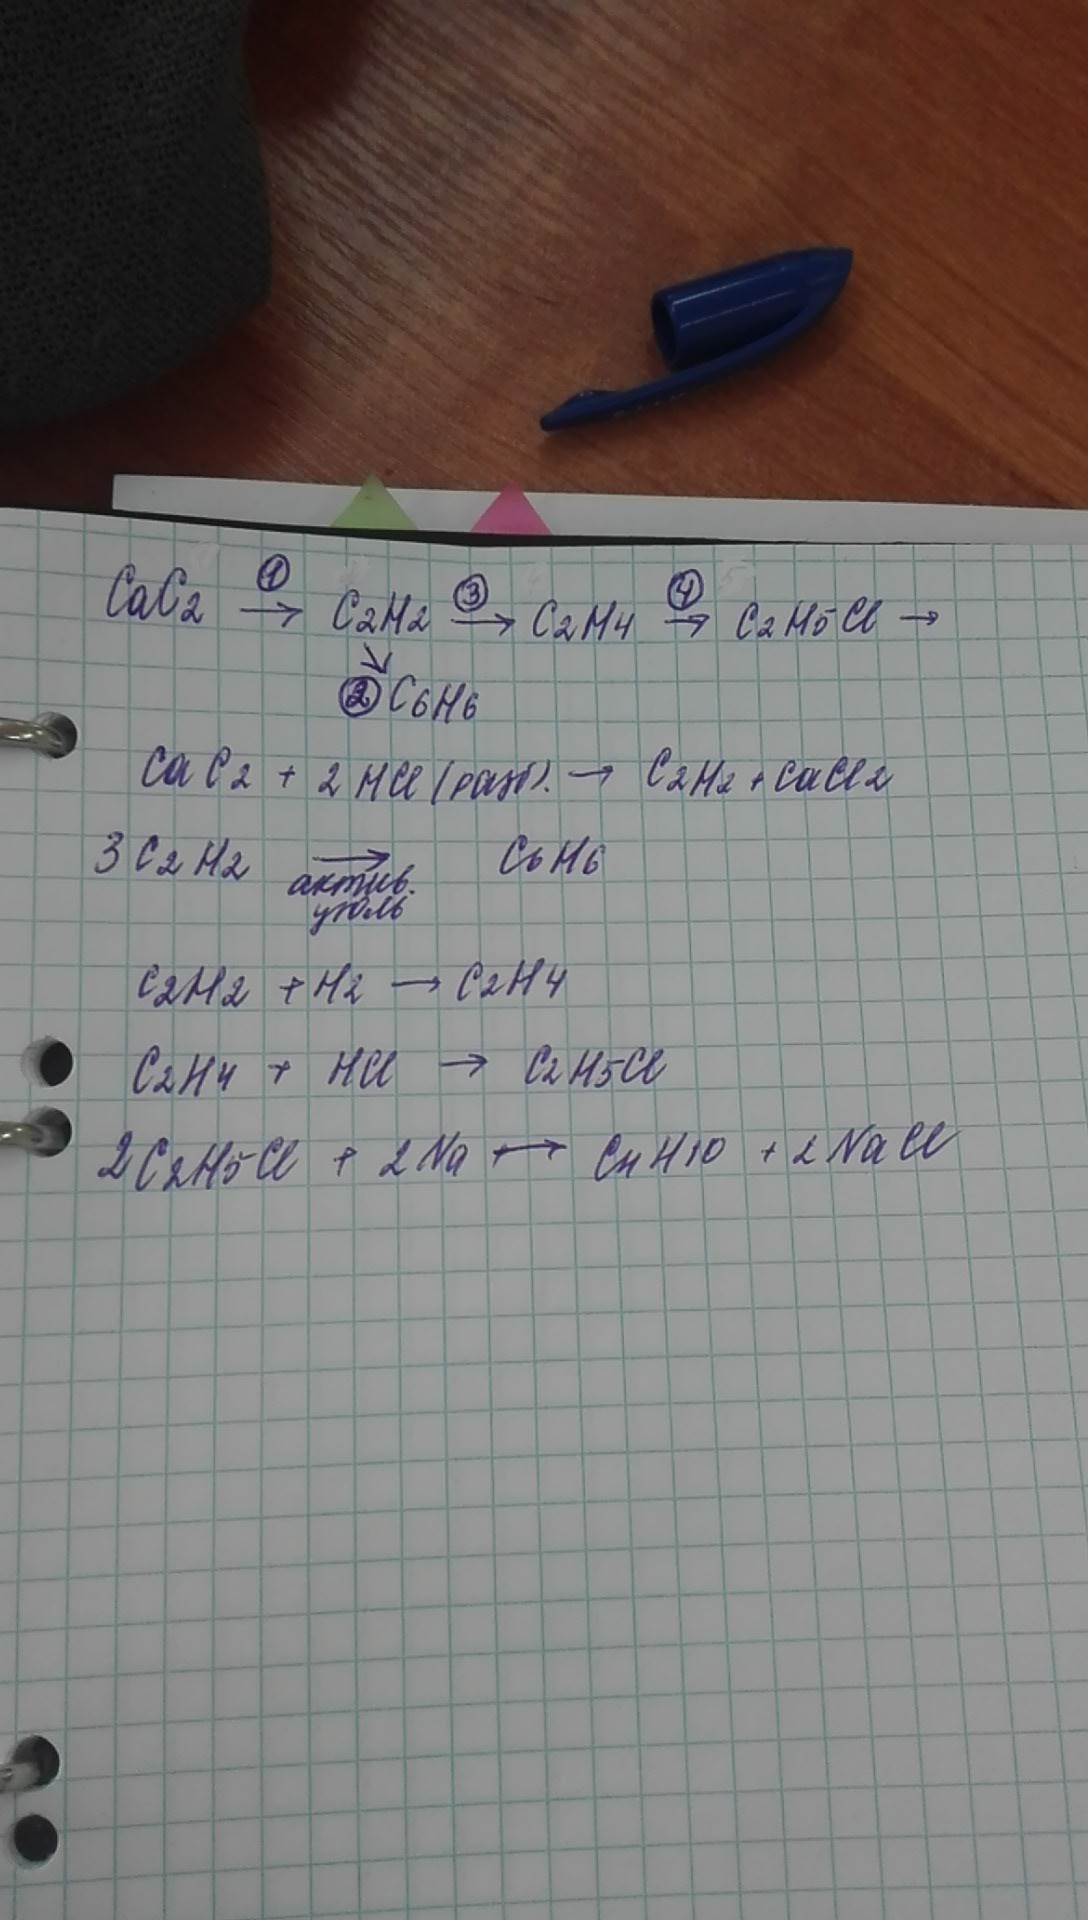 CaC2 ① → C2H2 ③ → C2H4 ④ → C2H5Cl →
↘
② C6H6
CaC2 + 2HCl (разб). → C2H2 + CaCl2
3C2H2 → C6H6
актив.
уголь
C2H2 + H2 → C2H4
C2H4 + HCl → C2H5Cl
2C2H5Cl + 2Na → C4H10 + 2NaCl